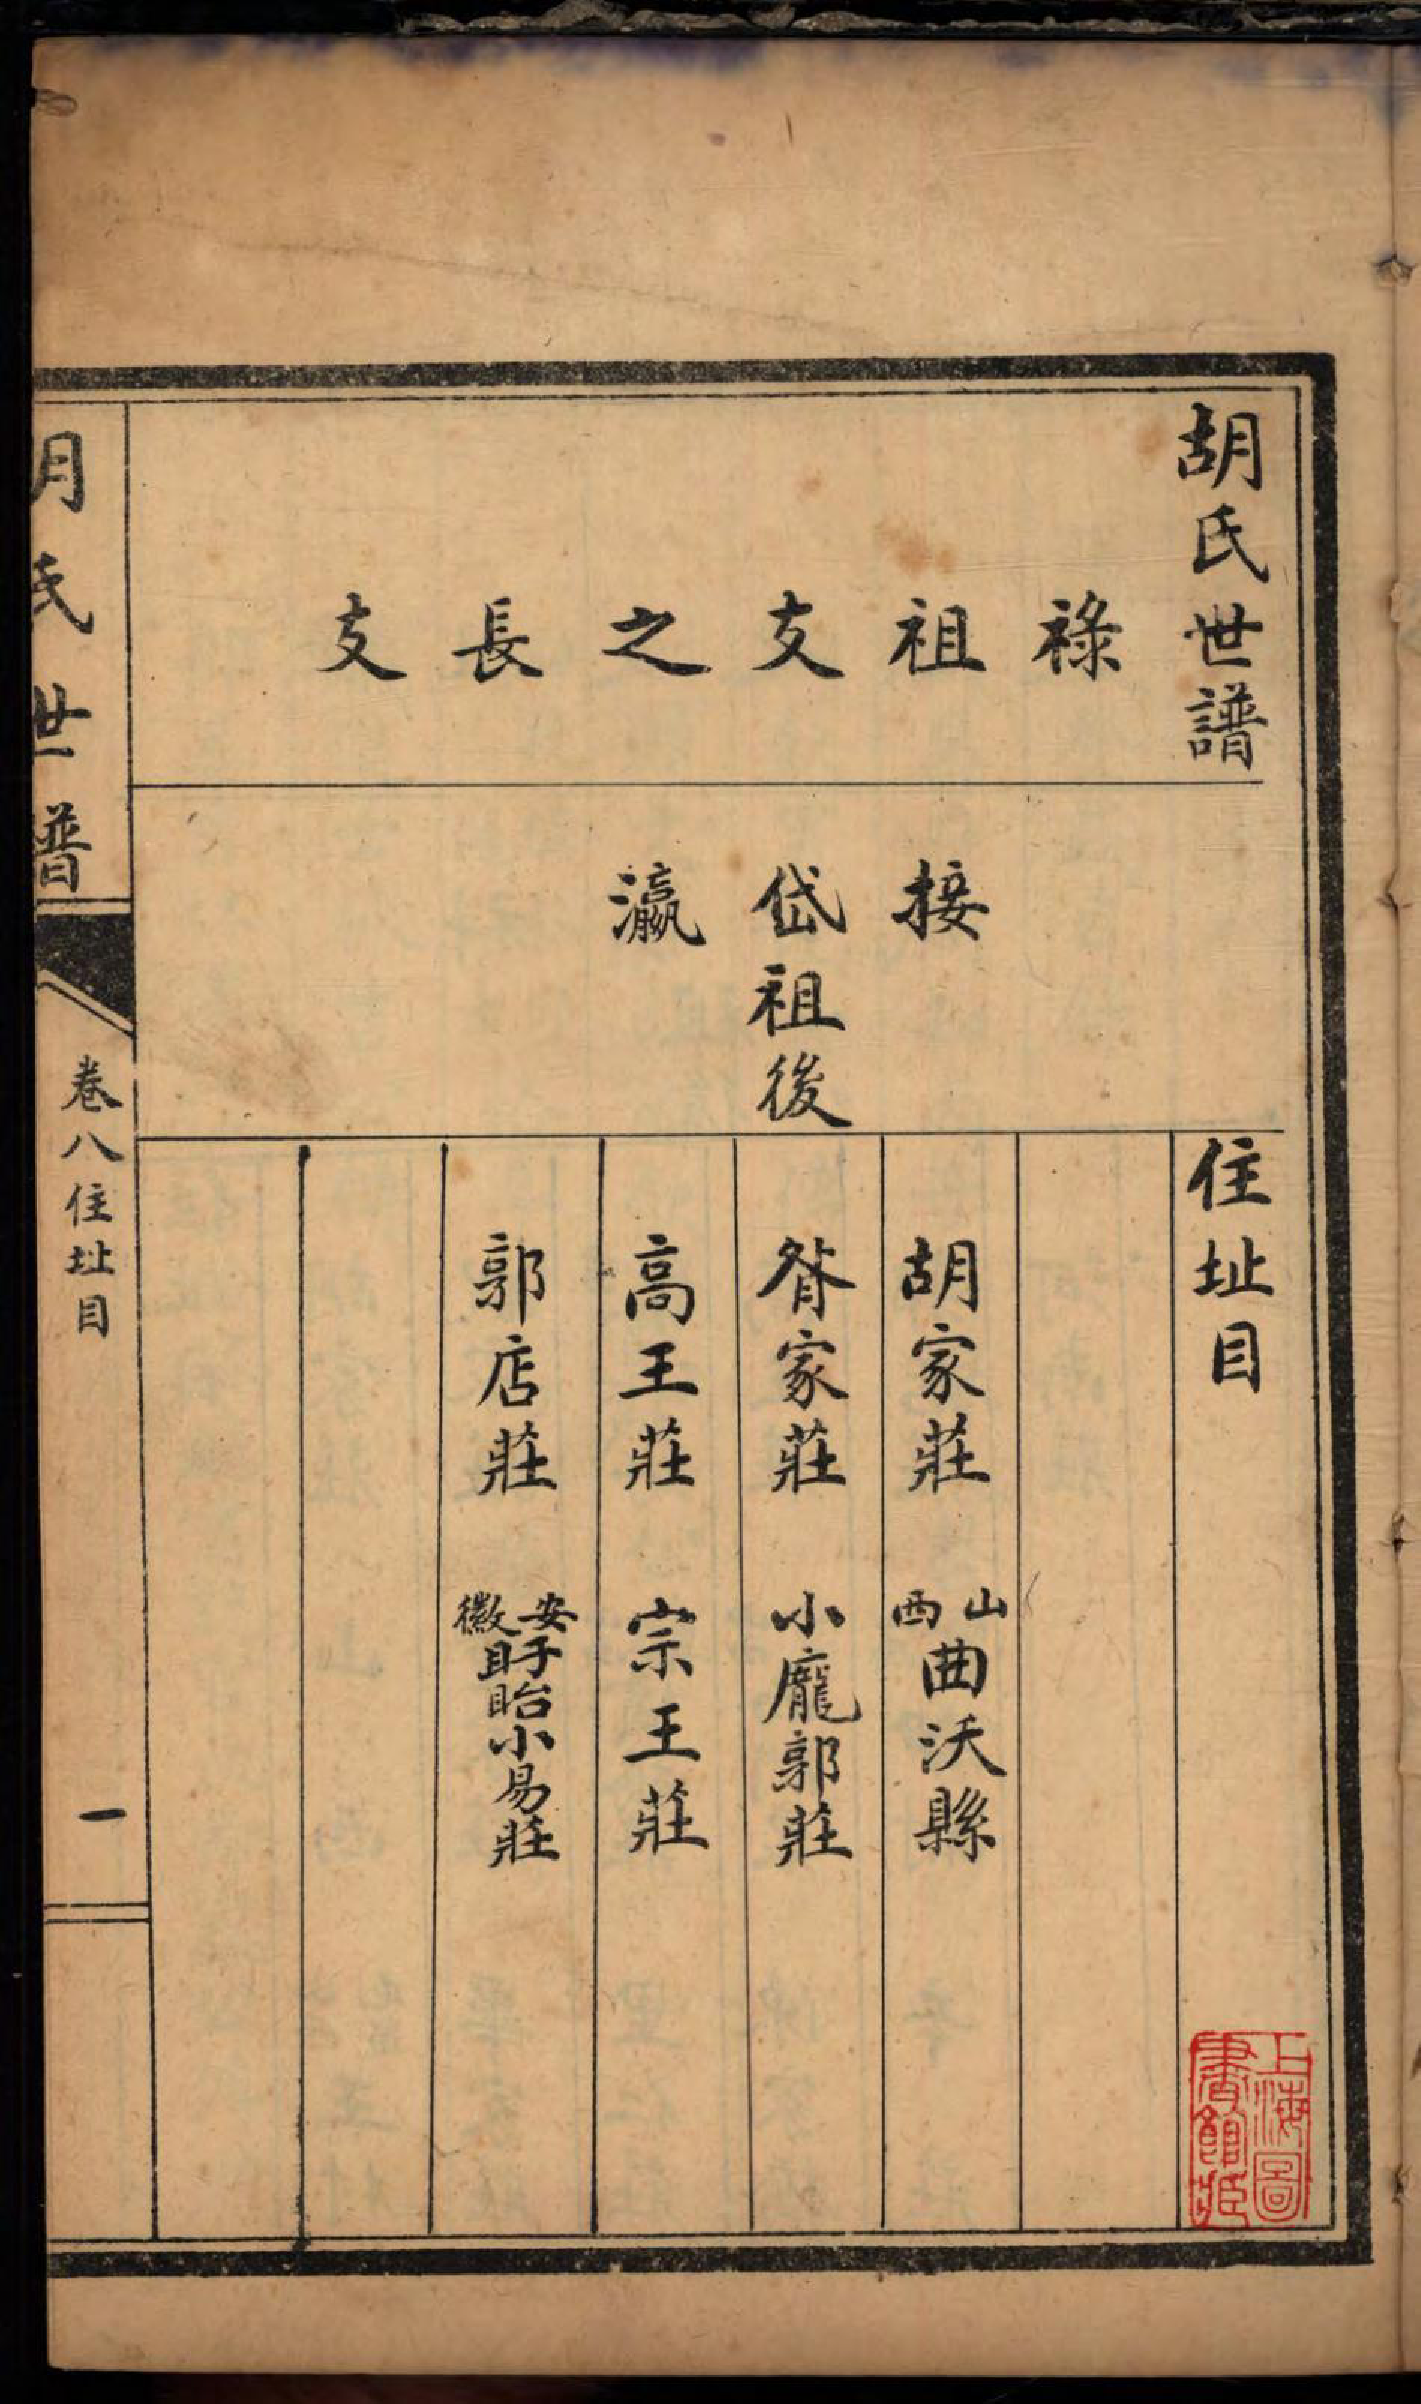 胡氏世譜 住址目
祿祖支之長支
接
岱祖後
瀛
胡家莊 山西曲沃縣
胥家莊 小龐郭莊
高王莊 宗王莊
郭店莊 安徽盱眙小易莊
胡氏世譜
卷八住址目
一
上海圖
書館藏